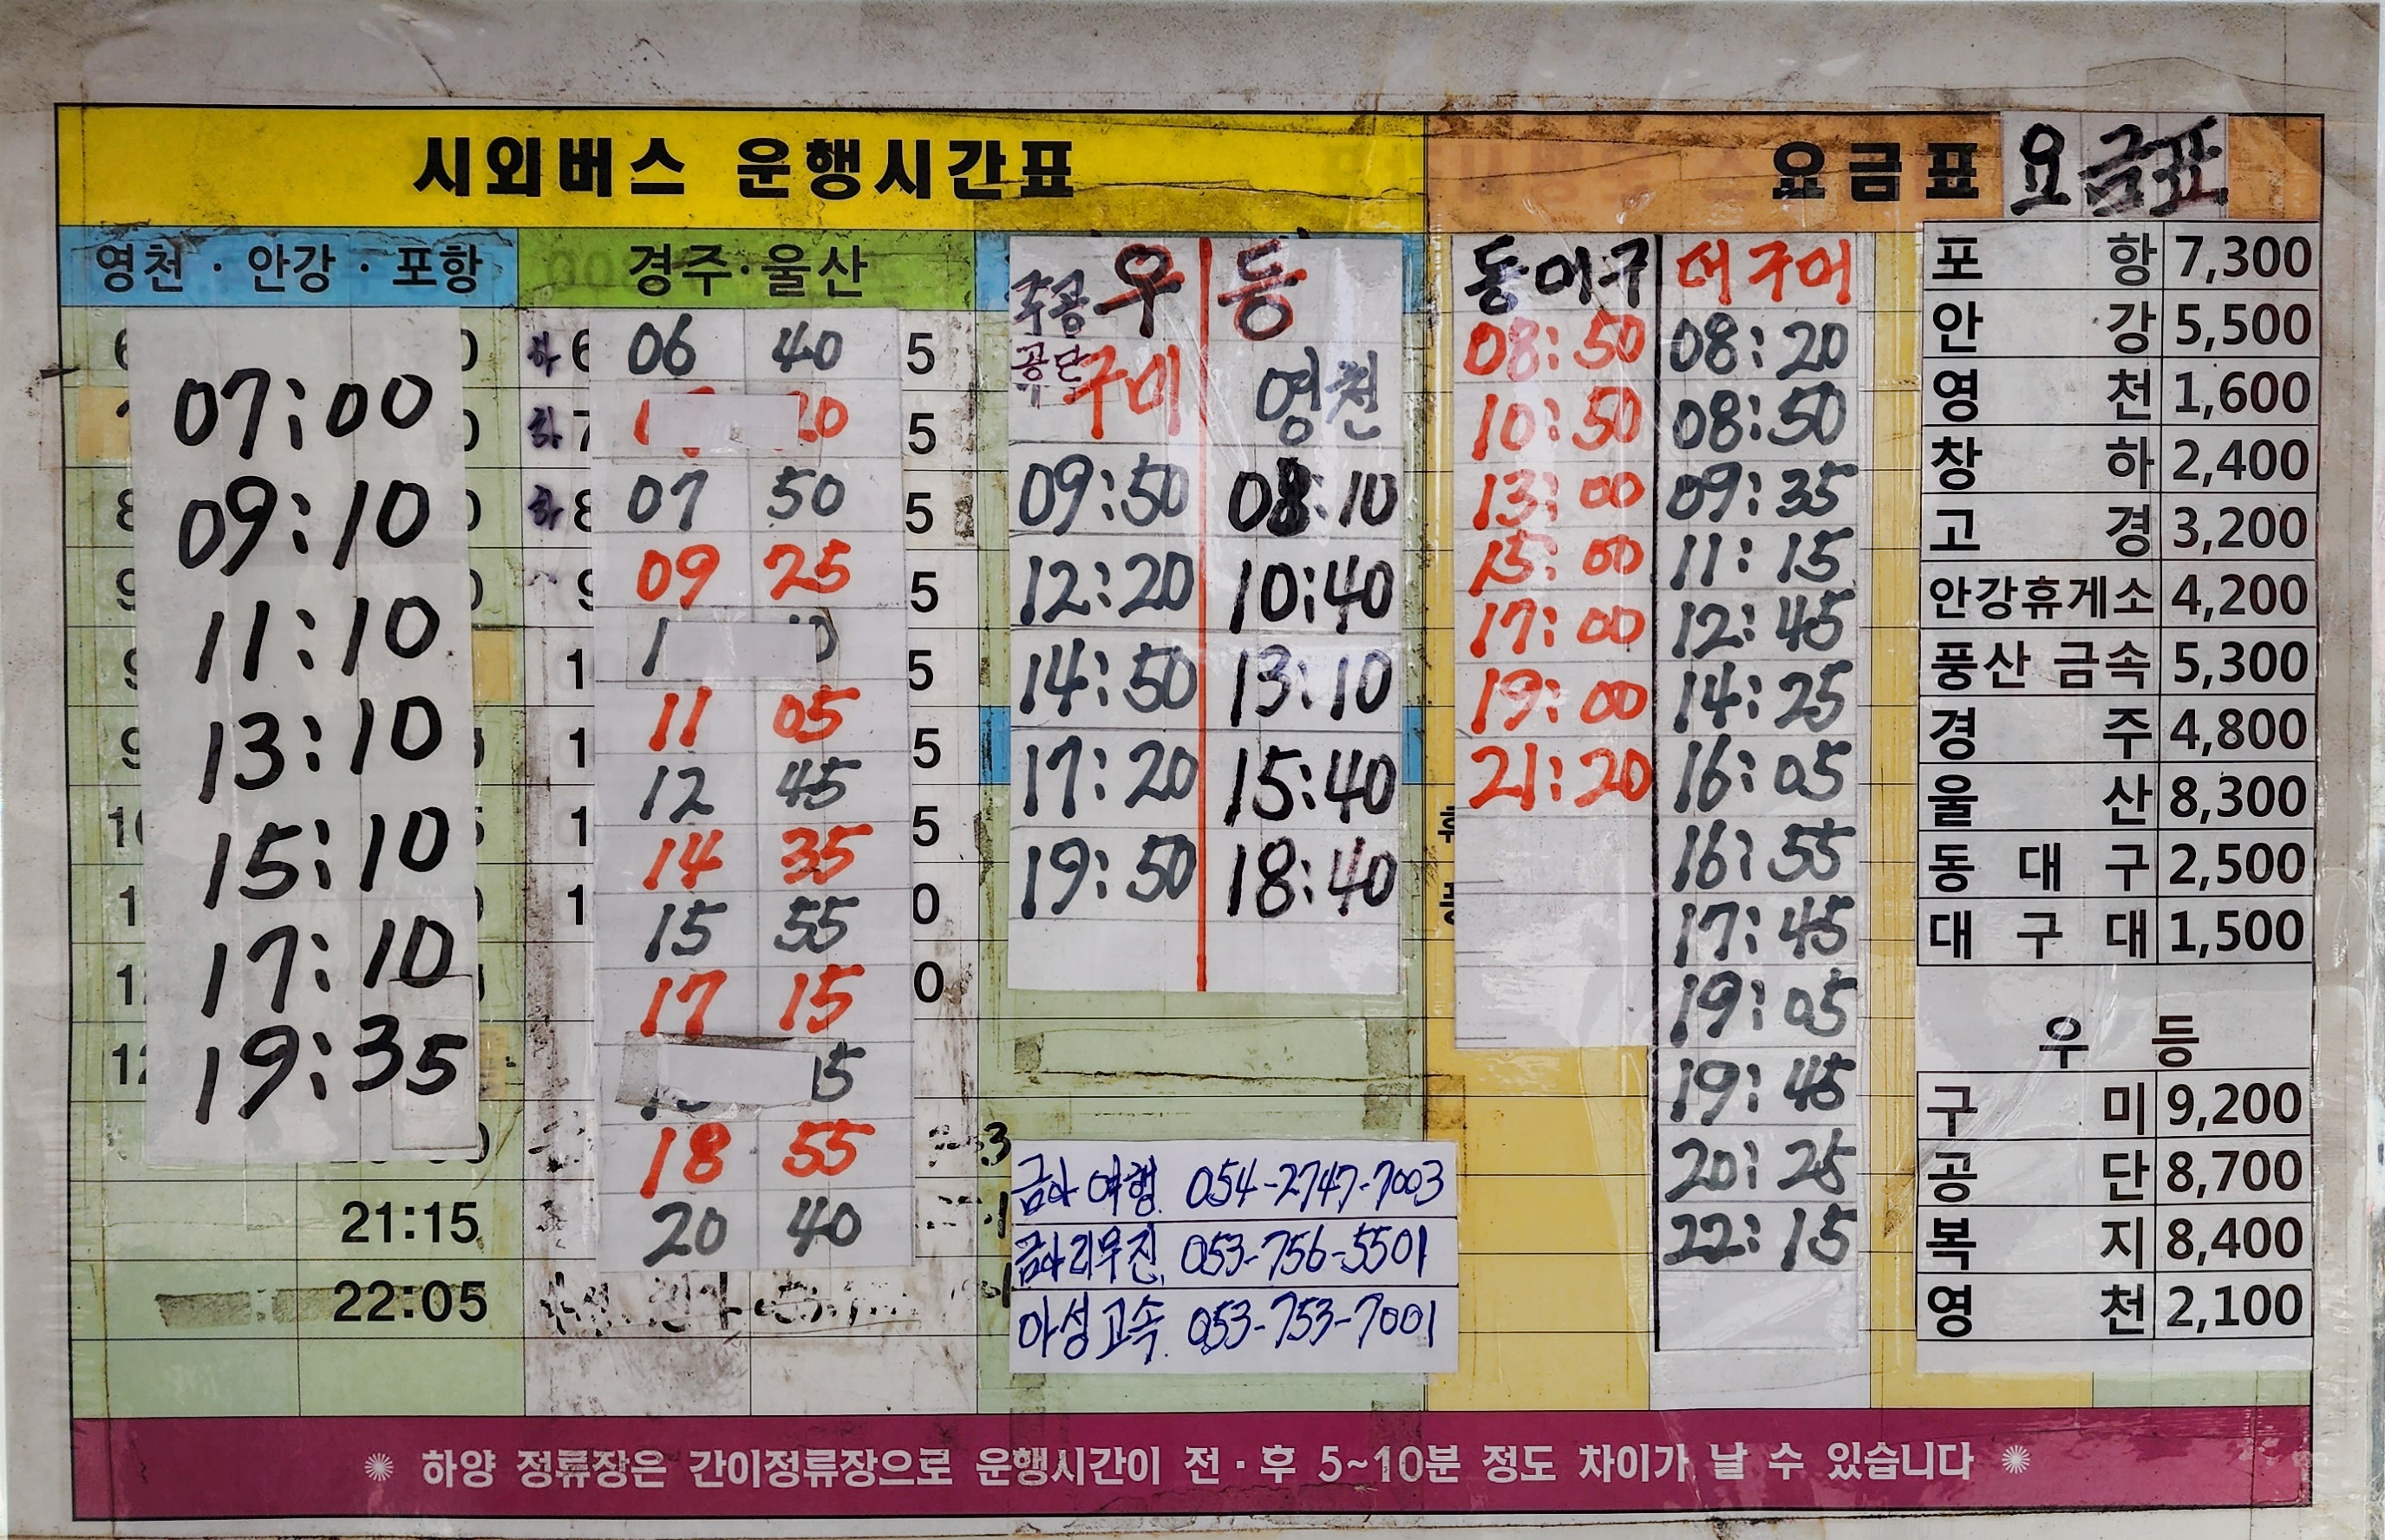 시외버스 운행시간표
영천 · 안강 · 포항
07:00
09:10
11:10
13:10
15:10
17:10
19:35
21:15
22:05
경주·울산
06 40
07 50
09 25
11 05
12 45
14 35
15 55
17 15
18 55
20 40
우등
공단
구미 영천
09:50 08:10
12:20 10:40
14:50 13:10
17:20 15:40
19:50 18:40
금아여행 054-2747-7003
금아리무진 053-756-5501
아성고속 053-753-7001
요금표 요금표
동대구 대구대
08:50 08:20
10:50 08:50
13:00 09:35
15:00 11:15
17:00 12:45
19:00 14:25
21:20 16:05
16:55
17:45
19:05
19:45
20:25
22:15
포항 7,300
안강 5,500
영천 1,600
창하 2,400
고경 3,200
안강휴게소 4,200
풍산금속 5,300
경주 4,800
울산 8,300
동대구 2,500
대구대 1,500
우등
구미 9,200
공단 8,700
복지 8,400
영천 2,100
※ 하양 정류장은 간이정류장으로 운행시간이 전·후 5~10분 정도 차이가 날 수 있습니다 ※